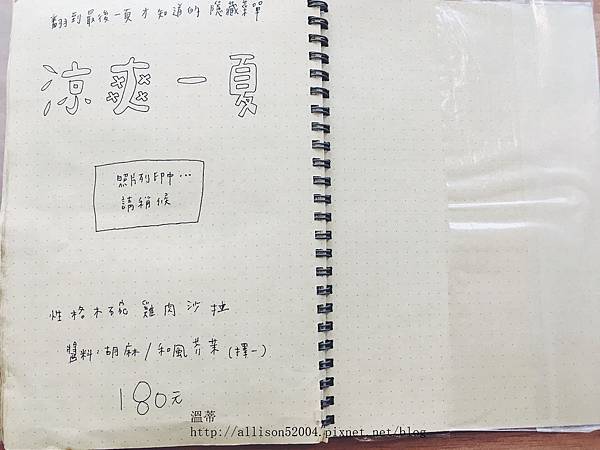 翻到最後一頁才知道的 隱藏菜單
涼爽一夏
照片列印中...
請稍候
性格木碗 雞肉沙拉
醬料:胡麻/和風芥茉(擇一)
180元
溫蒂
http://allison52004.pixnet.net/blog